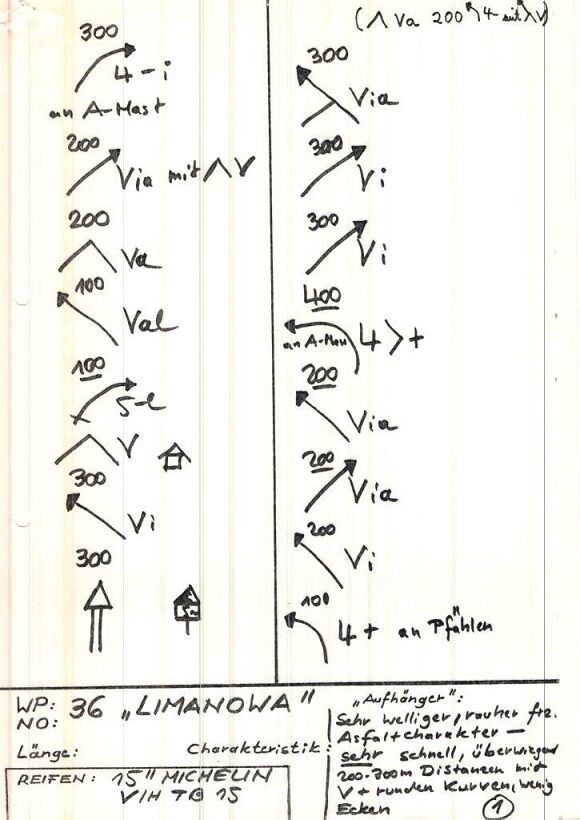 300
4-i
an A-Mast
200
Via mit ∧ V
200
Va
100
Val
100
5-l
V
300
Vi
300
(∧ Va 200 4 mit ∧ V)
300
Via
300
Vi
300
Vi
400
4 > +
200
Via
200
Via
200
Vi
100
4+ an Pfählen
WP: 36 „LIMANOWA"
NO:
Länge: Charakteristik:
REIFEN: 15" MICHELIN
V/H TB 15
„Aufhänger":
Sehr welliger, rauher frz.
Asfaltcharakter —
sehr schnell, überwiegend
200-300m Distanzen mit
V + runden Kurven, wenig
Ecken
1